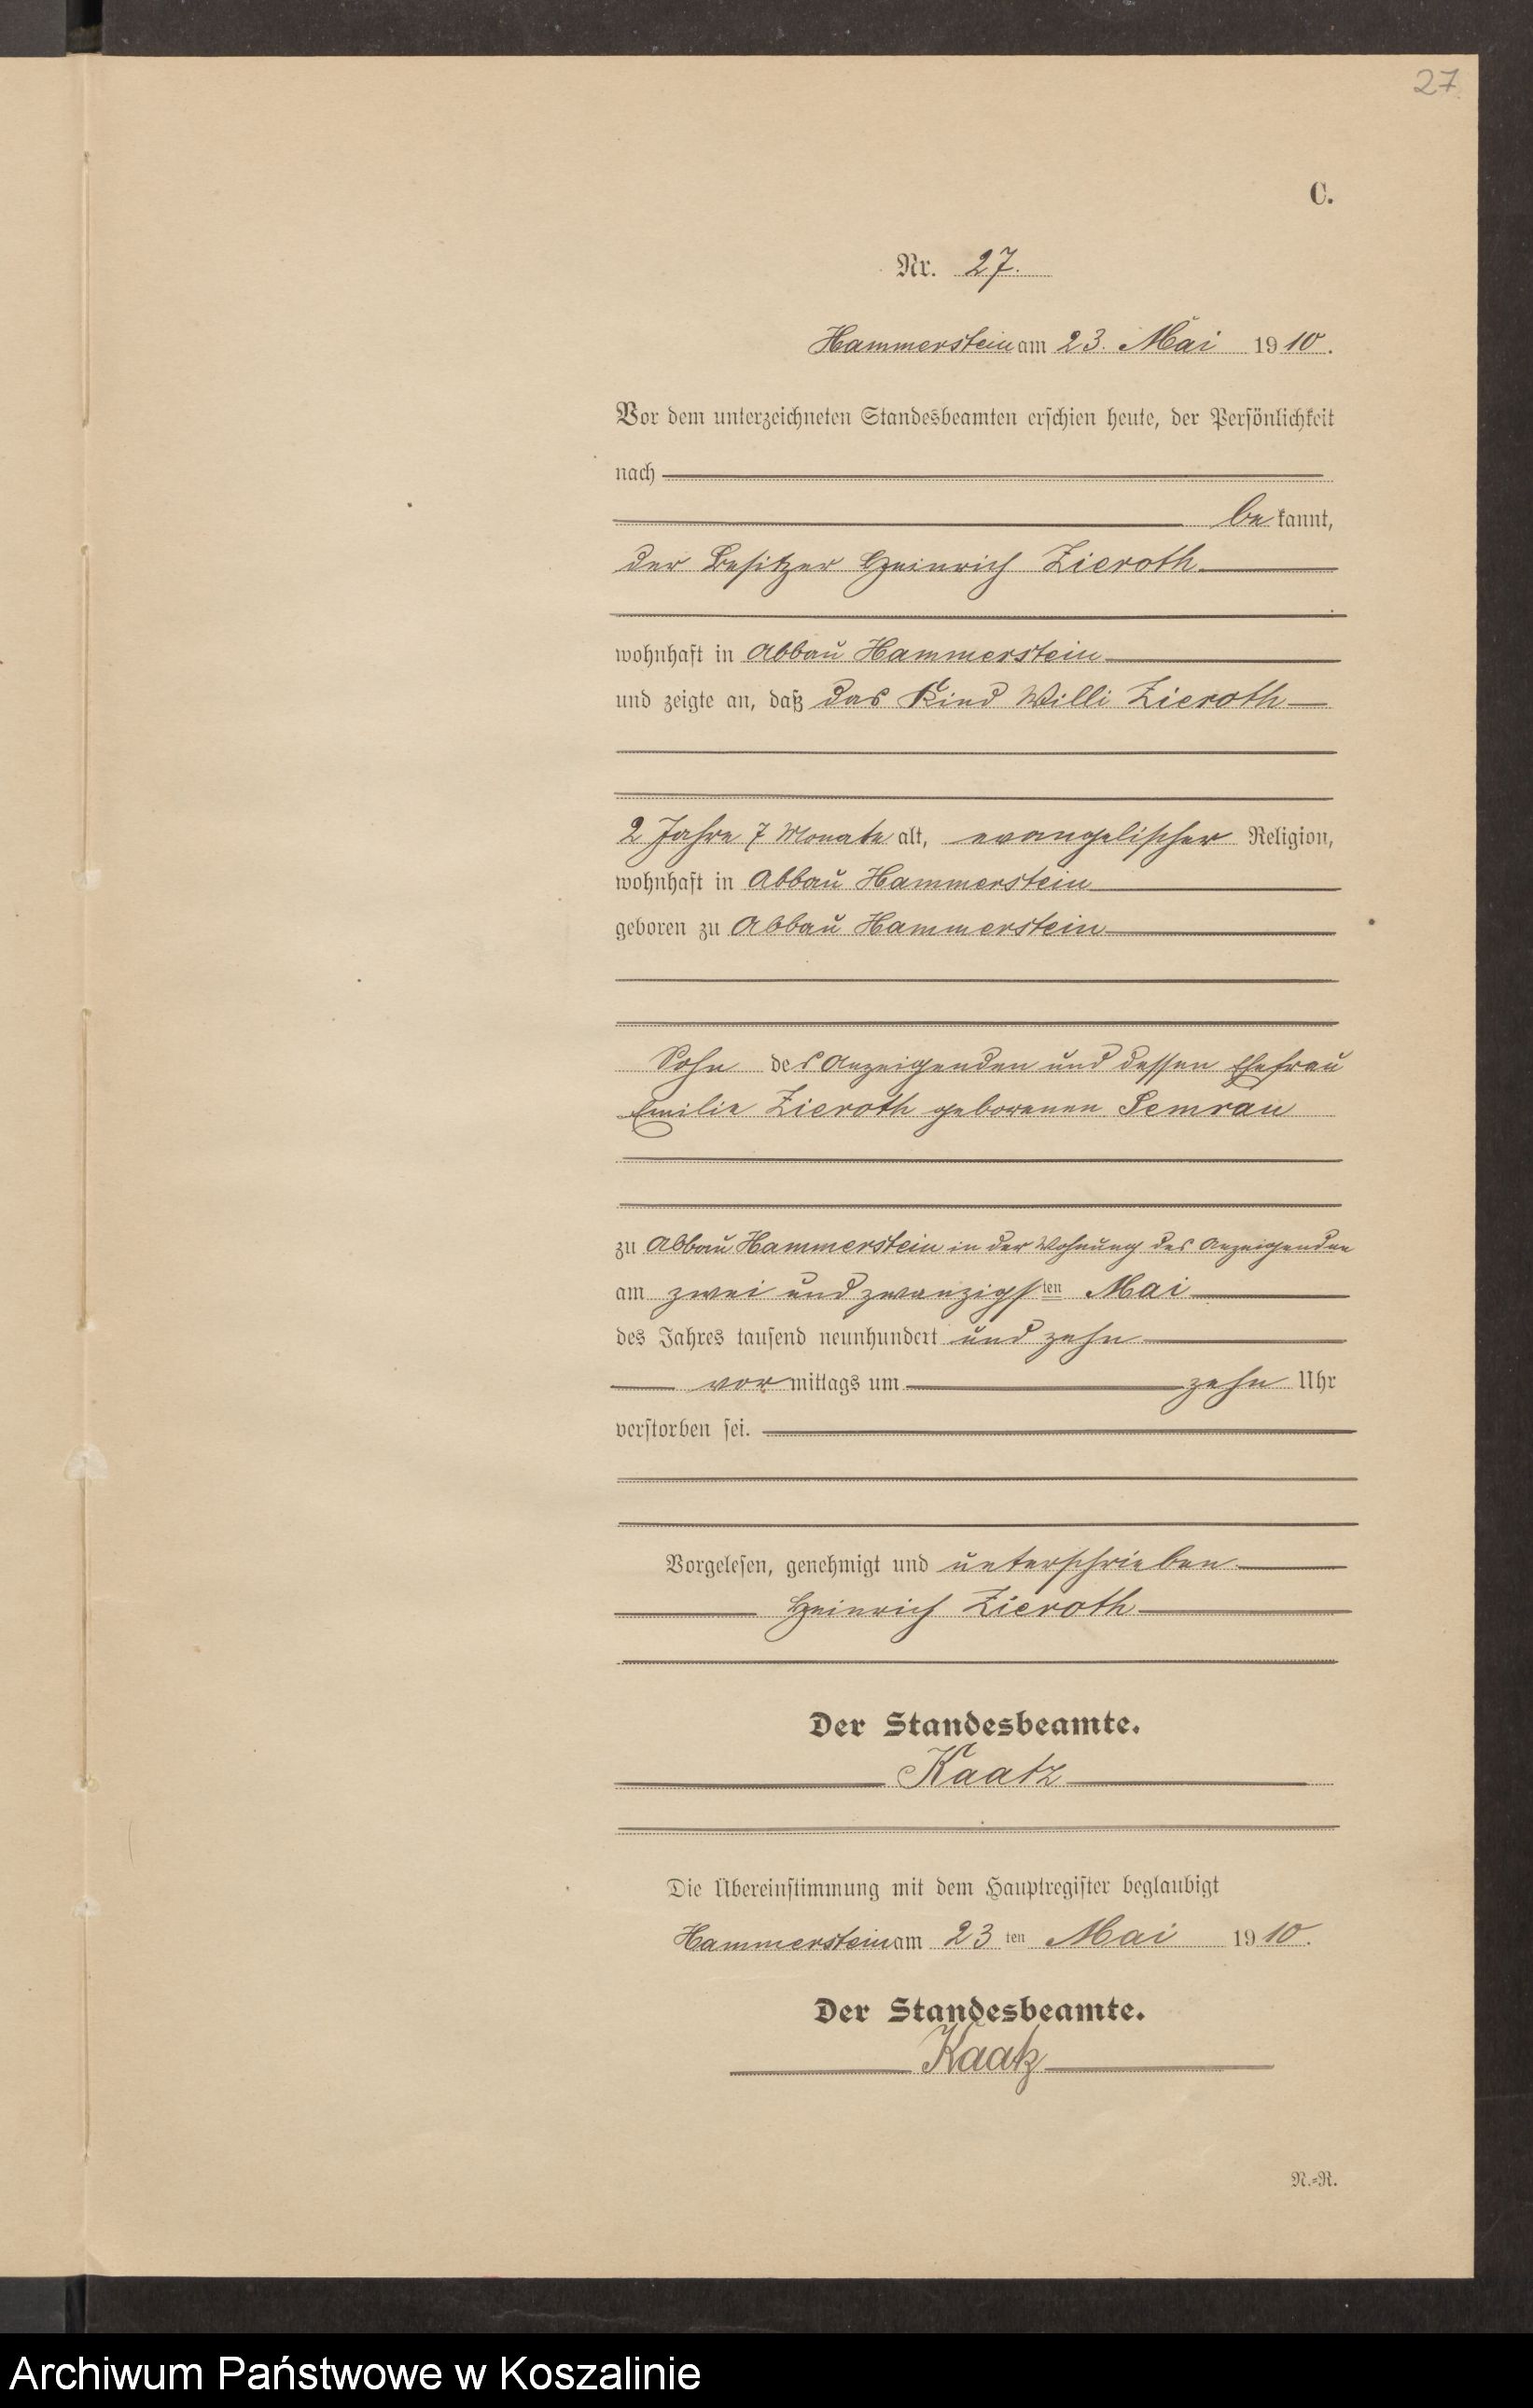 27.
C.
Nr. 27.
Hammerstein am 23. Mai 1910.
Vor dem unterzeichneten Standesbeamten erschien heute, der Persönlichkeit
nach
bekannt,
der Besitzer Heinrich Zieroth
wohnhaft in Abbau Hammerstein
und zeigte an, daß das Kind Willi Zieroth
2 Jahre 7 Monate alt, evangelischer Religion,
wohnhaft in Abbau Hammerstein
geboren zu Abbau Hammerstein
Sohn des Anzeigenden und dessen Ehefrau
Emilie Zieroth geborenen Semrau
zu Abbau Hammerstein in der Wohnung des Anzeigenden
am zwei und zwanzigsten Mai
des Jahres tausend neunhundert und zehn
vormittags um zehn Uhr
verstorben sei.
Vorgelesen, genehmigt und unterschrieben
Heinrich Zieroth
Der Standesbeamte.
Kaatz
Die Übereinstimmung mit dem Hauptregister beglaubigt
Hammerstein am 23ten Mai 1910.
Der Standesbeamte.
Kaatz
N.=R.
Archiwum Państwowe w Koszalinie